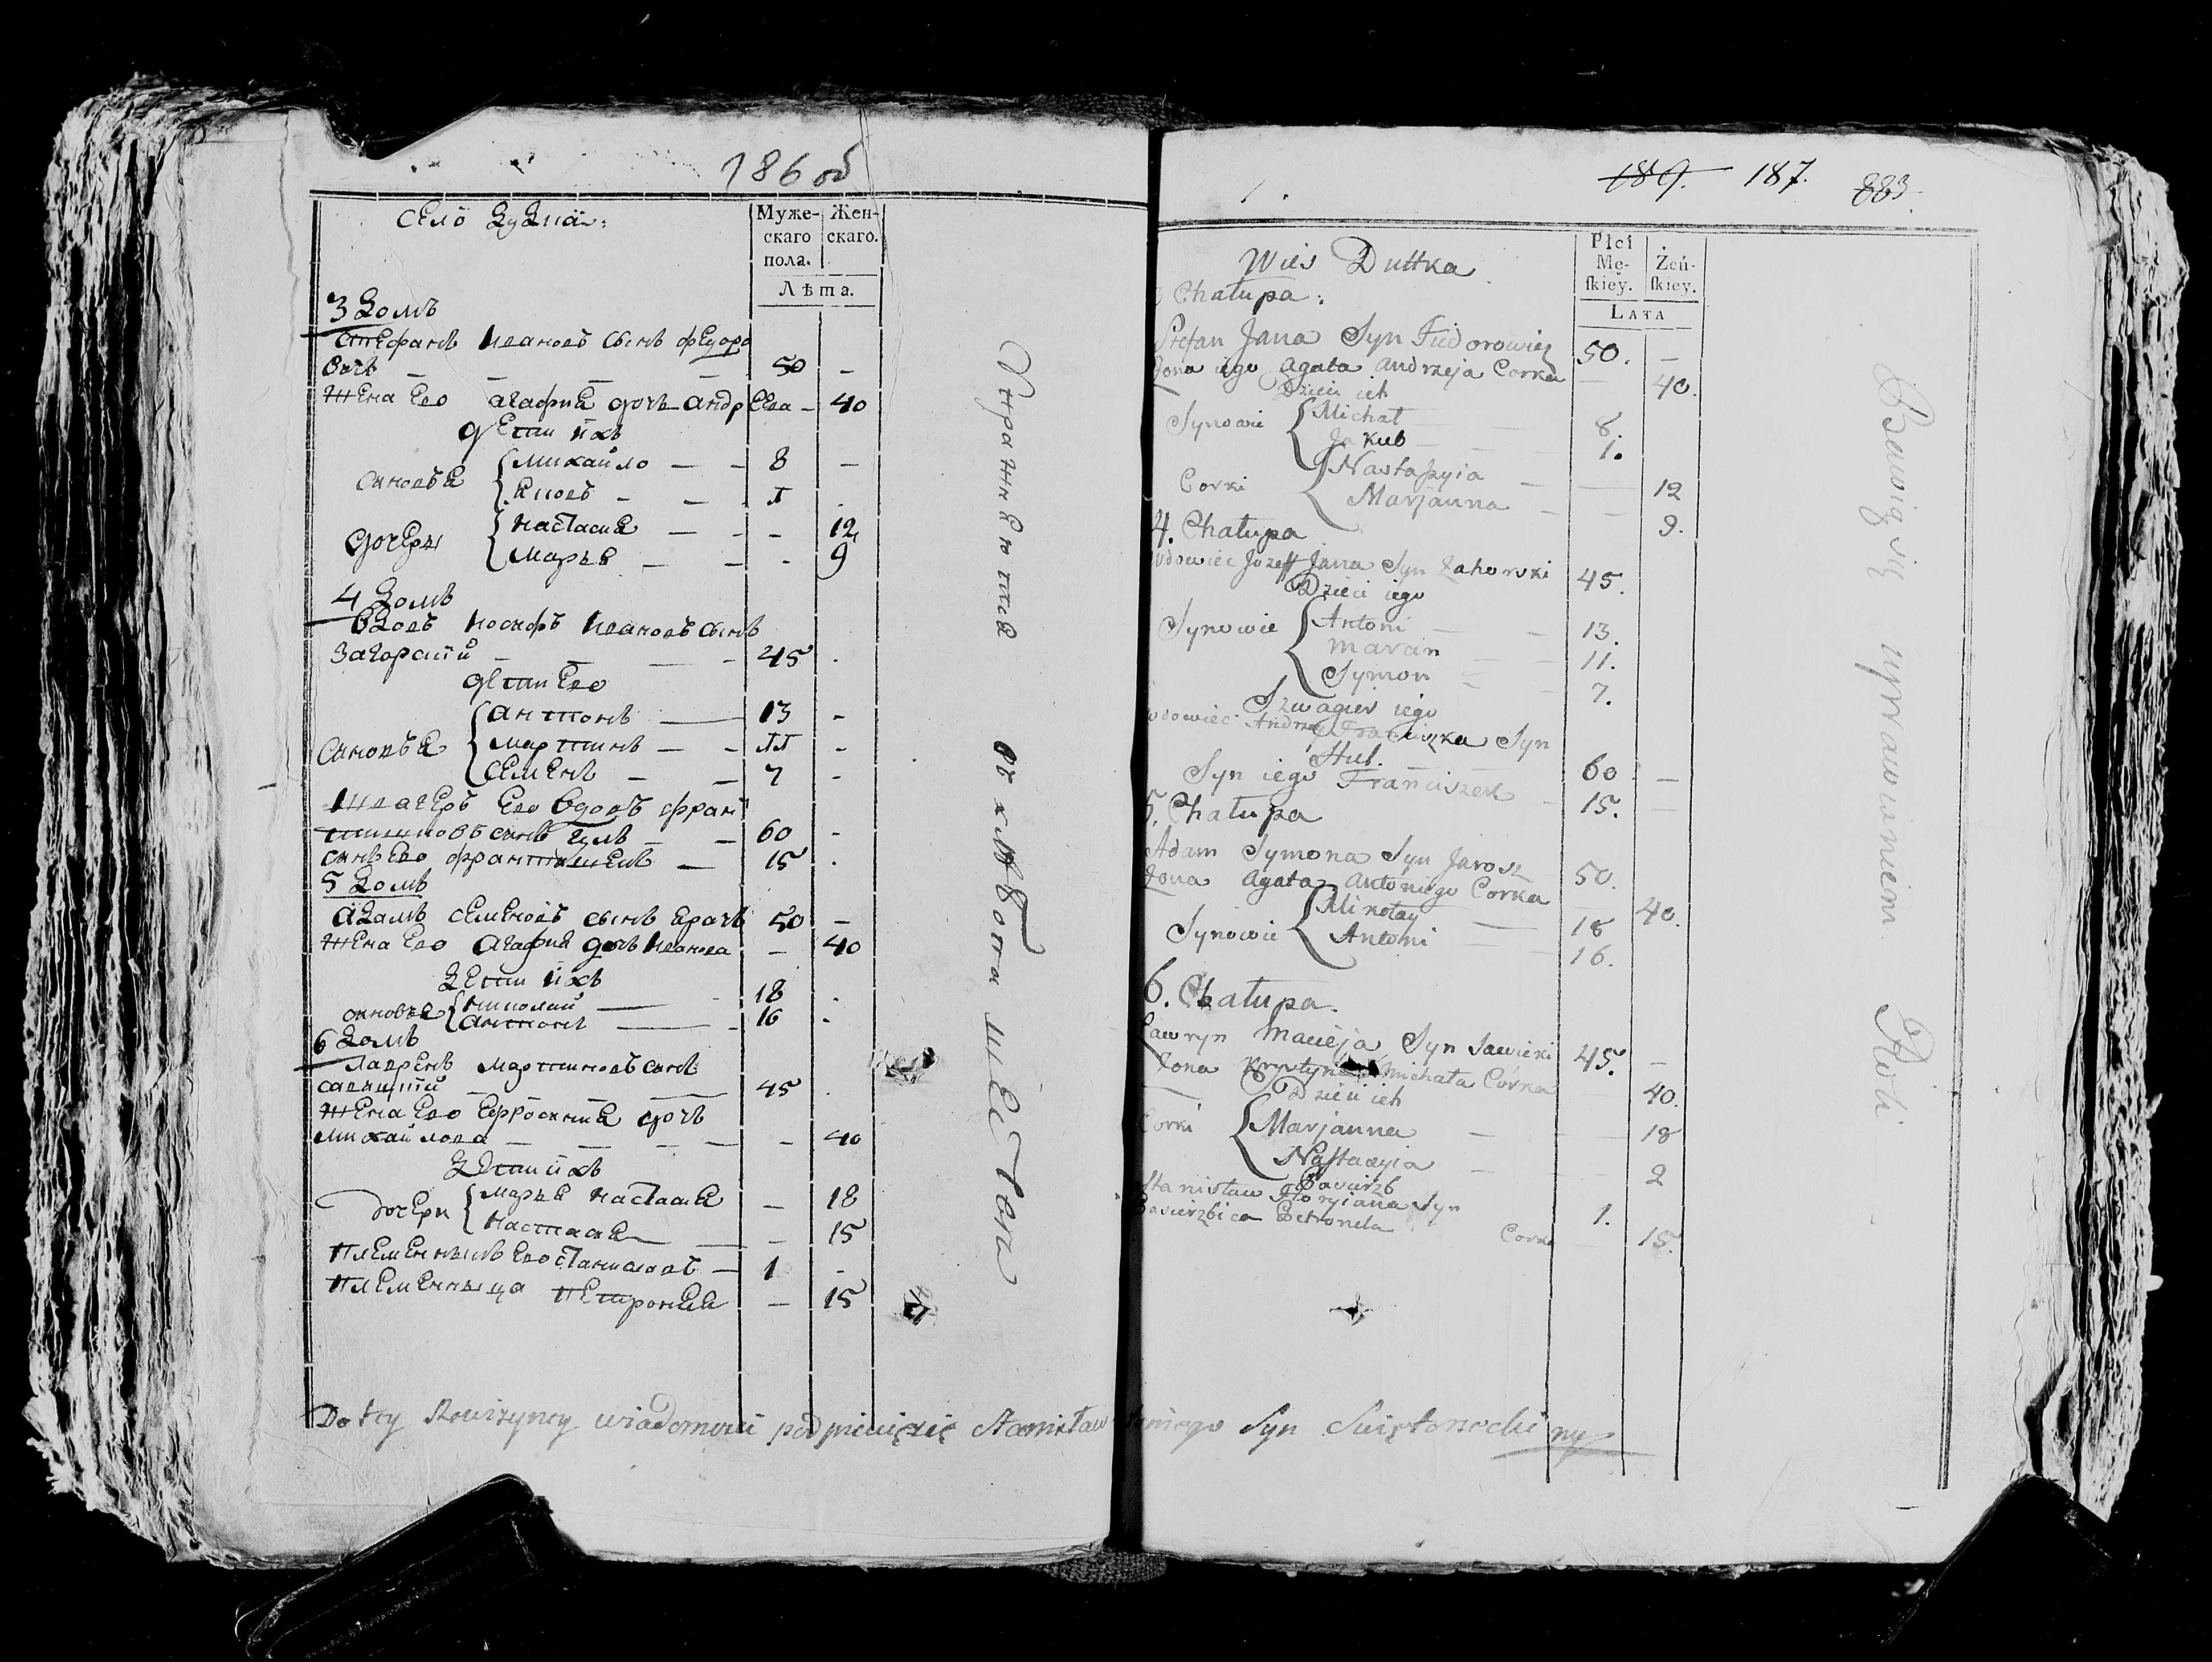 186 об
Село Дудка:
Муже-
скаго
пола.
Жен-
скаго.
Лѣта.
3 Домъ
Стефанъ Ивановъ сынъ Федоро
вичъ — — — — 50 —
Жена Ево Агафия дочь Андр Еева — 40
дети ихъ
сыновья { Михайло — — 8 —
Яковъ — — 1 .
дочеры { Настасия — — - 12
Марья — — - 9
4 Домъ
Вдовъ Иосифъ Ивановъ сынъ
Загорский — — — 45 .
дети Ево
сыновья { Антонъ — 13 -
Мартинъ — — 11 -
Семенъ — — 7 -
Швагеръ Ево вдовъ Фран
сынъ Гуль — — 60 -
сынъ Ево — 15 .
5 Домъ
Адамъ Семеновъ сынъ 50 —
Жена Ево Агафия дочь Иванова — 40
Дети ихъ
сыновья { Николай — 18 .
Антонъ — 16 .
6 Домъ
Лавренъ Мартиновъ сынъ
савицкий — — — 45 .
Жена Ево Ефросиния дочь
Михайлова — — — — - 40
Дети ихъ
Дочери { Марья Настасия — 18
Настасия — — 15
Племенникъ Ево Станиславъ — 1 -
Племенныца Петронея — 15
Упражняются въ хлѣбопашествѣ
189. 187. 883.
Wies Duttka
Płci
Mę-
ſkiey.
Żeń-
ſkiey.
Lata
Chałupa:
Stefan Jana Syn Fiidorowicz 50. —
Zona iego Agata Andrzeja Corka — 40.
Dzieci ich
Synowie { Michał — — 8.
Jakub — — 1.
Corki { Nastazyia — — 12
Marjanna — — 9.
4. Chałupa
Wdowiec Jozeff Jana Syn Zahorski 45.
Dzieci iego
Synowie { Antoni — — 13.
Marcin — — 11.
Symon — — 7.
Szwagier iego
Wdowiec Andrzej Franciszka Syn
Hul. 60 —
Syn iego Franciszek — 15. —
5. Chałupa
Adam Symona Syn Jarosz 50.
Zona Agata Antoniego Corka — 40.
Synowie { Mikołay — 18
Antoni — 16.
6. Chałupa.
Ławryn Macieja Syn Sawicki 45. —
Zona Krystyna Michała Córka — 40.
Dzieci ich
Corki { Marjanna — — 18
Nastazyia — — 2
Pasierzb
Stanisław Floryiana Syn 1.
Pasierzbica Petronela Corka — 15.
Bawią się uprawianiem Roli
Do tey Rewizyney wiadomosci podpisuię się Stanisław Syn